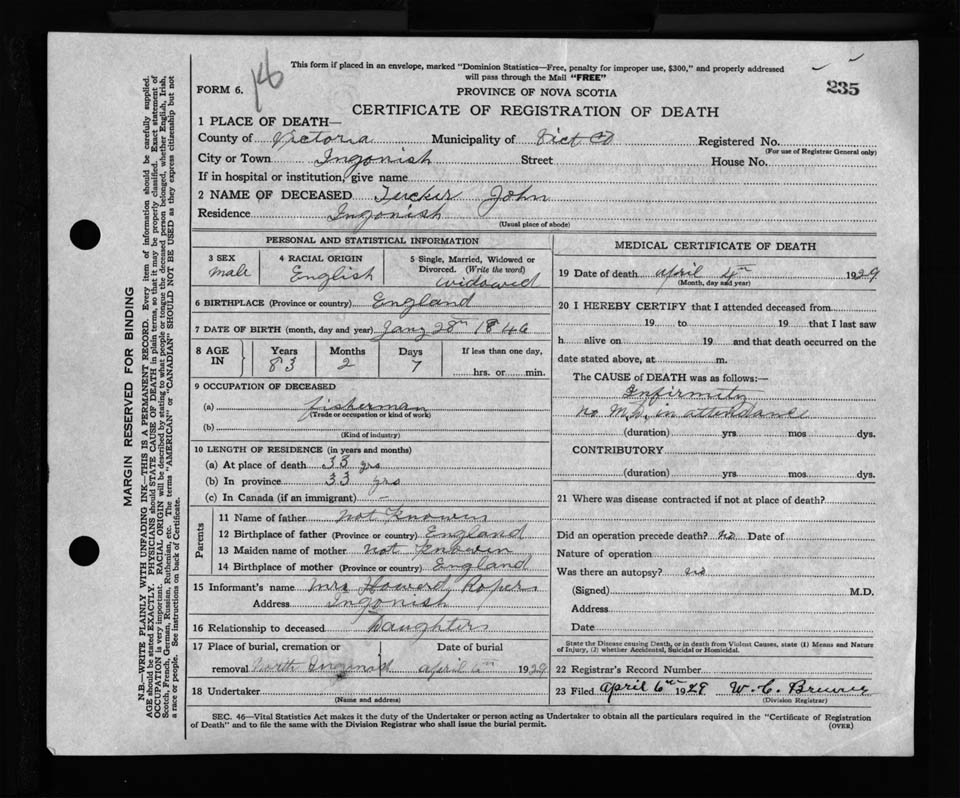 This form if placed in an envelope, marked "Dominion Statistics—Free, penalty for improper use, $300," and properly addressed
will pass through the Mail "FREE"
FORM 6.
PROVINCE OF NOVA SCOTIA
235
CERTIFICATE OF REGISTRATION OF DEATH
1 PLACE OF DEATH—
County of Victoria Municipality of Vict Co Registered No.
(For use of Registrar General only)
City or Town Ingonish Street House No.
If in hospital or institution, give name
2 NAME OF DECEASED Tucker John
Residence Ingonish
(Usual place of abode)
PERSONAL AND STATISTICAL INFORMATION
3 SEX 4 RACIAL ORIGIN 5 Single, Married, Widowed or
Divorced. (Write the word)
male English widowid
6 BIRTHPLACE (Province or country) England
7 DATE OF BIRTH (month, day and year) Jany 28th 1846
8 AGE IN Years Months Days If less than one day,
83 2 7 hrs. or min.
9 OCCUPATION OF DECEASED
(a) fisherman
(Trade or occupation or kind of work)
(b)
(Kind of industry)
10 LENGTH OF RESIDENCE (in years and months)
(a) At place of death 33 yrs
(b) In province 33 yrs
(c) In Canada (if an immigrant) -
Parents
11 Name of father not Known
12 Birthplace of father (Province or country) England
13 Maiden name of mother not Known
14 Birthplace of mother (Province or country) England
15 Informant's name Mrs Howard Roper
Address Ingonish
16 Relationship to deceased Daughter
17 Place of burial, cremation or Date of burial
removal North Ingonish april 6th 1929
18 Undertaker
(Name and address)
MEDICAL CERTIFICATE OF DEATH
19 Date of death april 4th 1929
(Month, day and year)
20 I HEREBY CERTIFY that I attended deceased from
19 to 19 that I last saw
h alive on 19 and that death occurred on the
date stated above, at m.
The CAUSE of DEATH was as follows:—
Infirmity
no M.D. in attendance
(duration) yrs mos dys.
CONTRIBUTORY
(duration) yrs. mos. dys.
21 Where was disease contracted if not at place of death?
Did an operation precede death? no Date of
Nature of operation
Was there an autopsy? no
(Signed) M.D.
Address
Date
State the Disease causing Death, or in death from Violent Causes, state (1) Means and Nature
of Injury, (2) whether Accidental, Suicidal or Homicidal.
22 Registrar's Record Number
23 Filed April 6th 1929 W. C. Brewer
(Division Registrar)
SEC. 46—Vital Statistics Act makes it the duty of the Undertaker or person acting as Undertaker to obtain all the particulars required in the "Certificate of Registration
of Death" and to file the same with the Division Registrar who shall issue the burial permit.
(OVER)
MARGIN RESERVED FOR BINDING
N.B.—WRITE PLAINLY WITH UNFADING INK—THIS IS A PERMANENT RECORD. Every item of information should be carefully supplied.
AGE should be stated EXACTLY. PHYSICIANS should STATE CAUSE OF DEATH in plain terms, so that it may be properly classified. Exact statement of
OCCUPATION is very important. RACIAL ORIGIN will be described by stating to what people or tongue the deceased person belonged, whether English, Irish,
Scotch, French, German, Russian, Ruthenian, etc. The terms "AMERICAN" or "CANADIAN" SHOULD NOT BE USED as they express citizenship but not
a race or people. See instructions on back of Certificate.